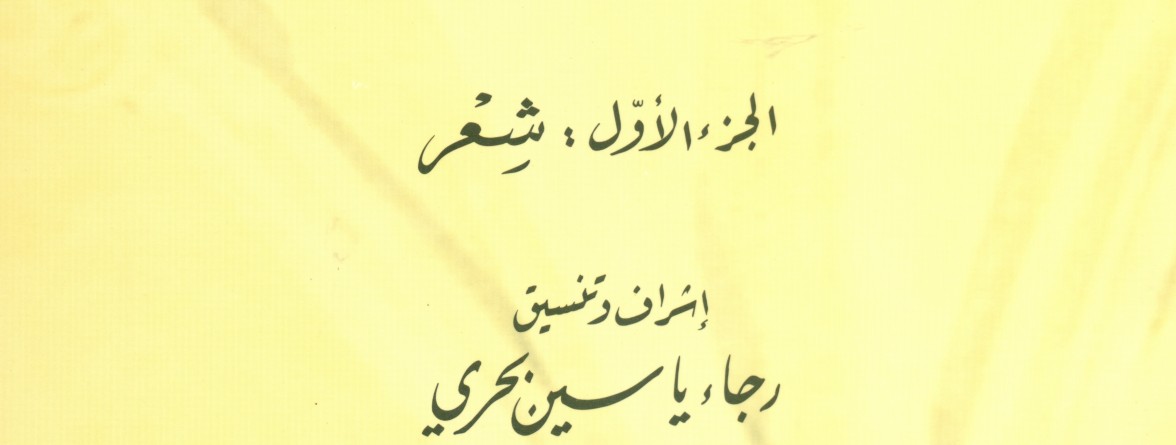 الجزء الأوّل : شِعْر
إشراف وتنسيق
رجاء ياسين بحري